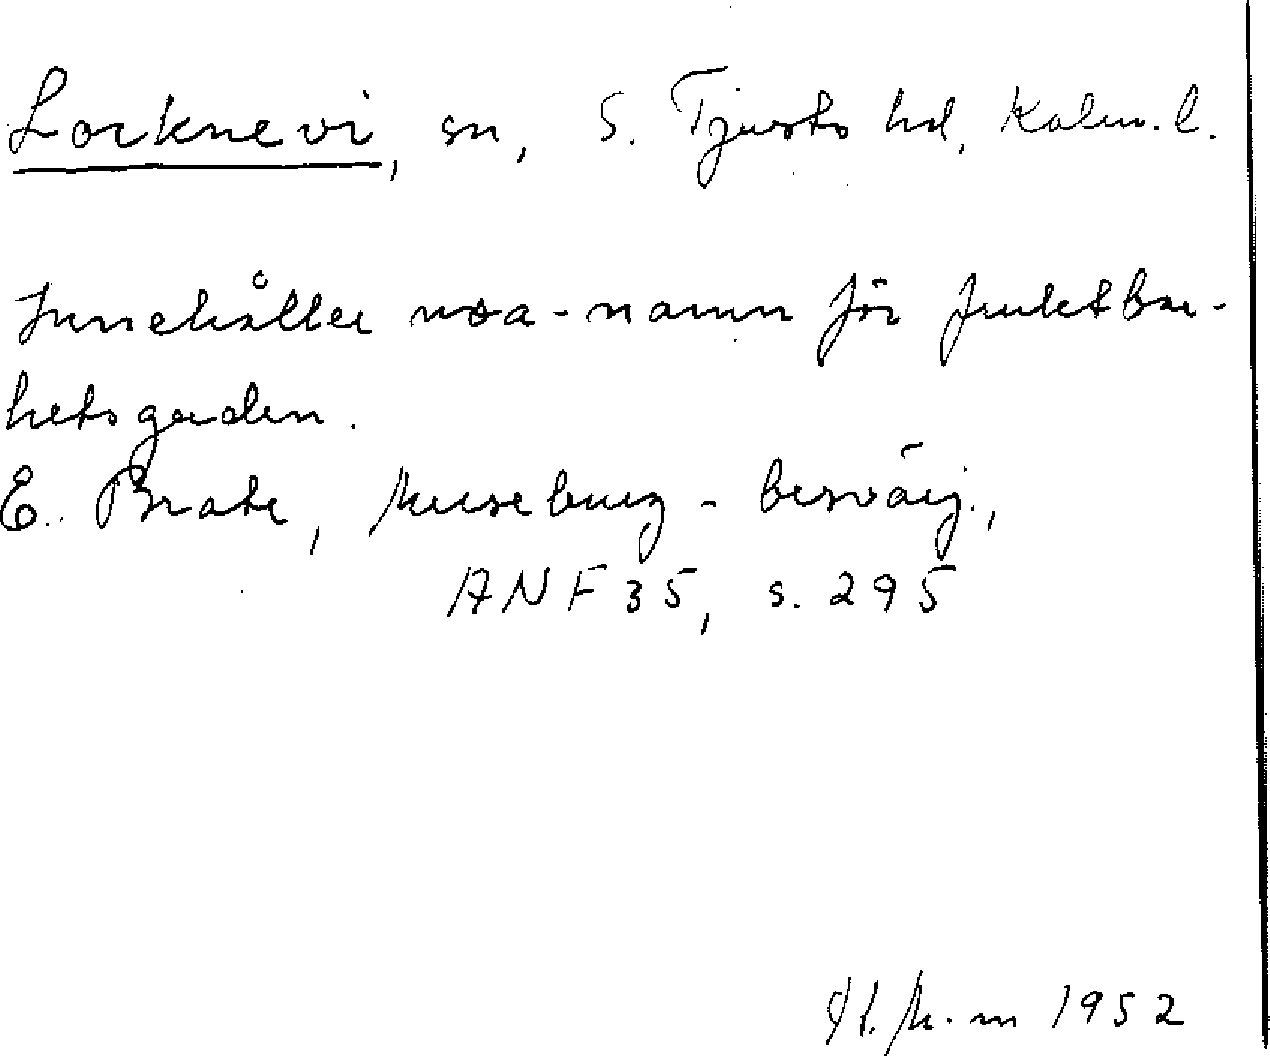 Locknevi, sn, S. Tjusts hd, Kalm. l.
Innehåller noa-namn för fruktbar-
hetsguden.
E. Brate, Merseburg-besvärj.,
ANF 35, s. 295
M-m 1952